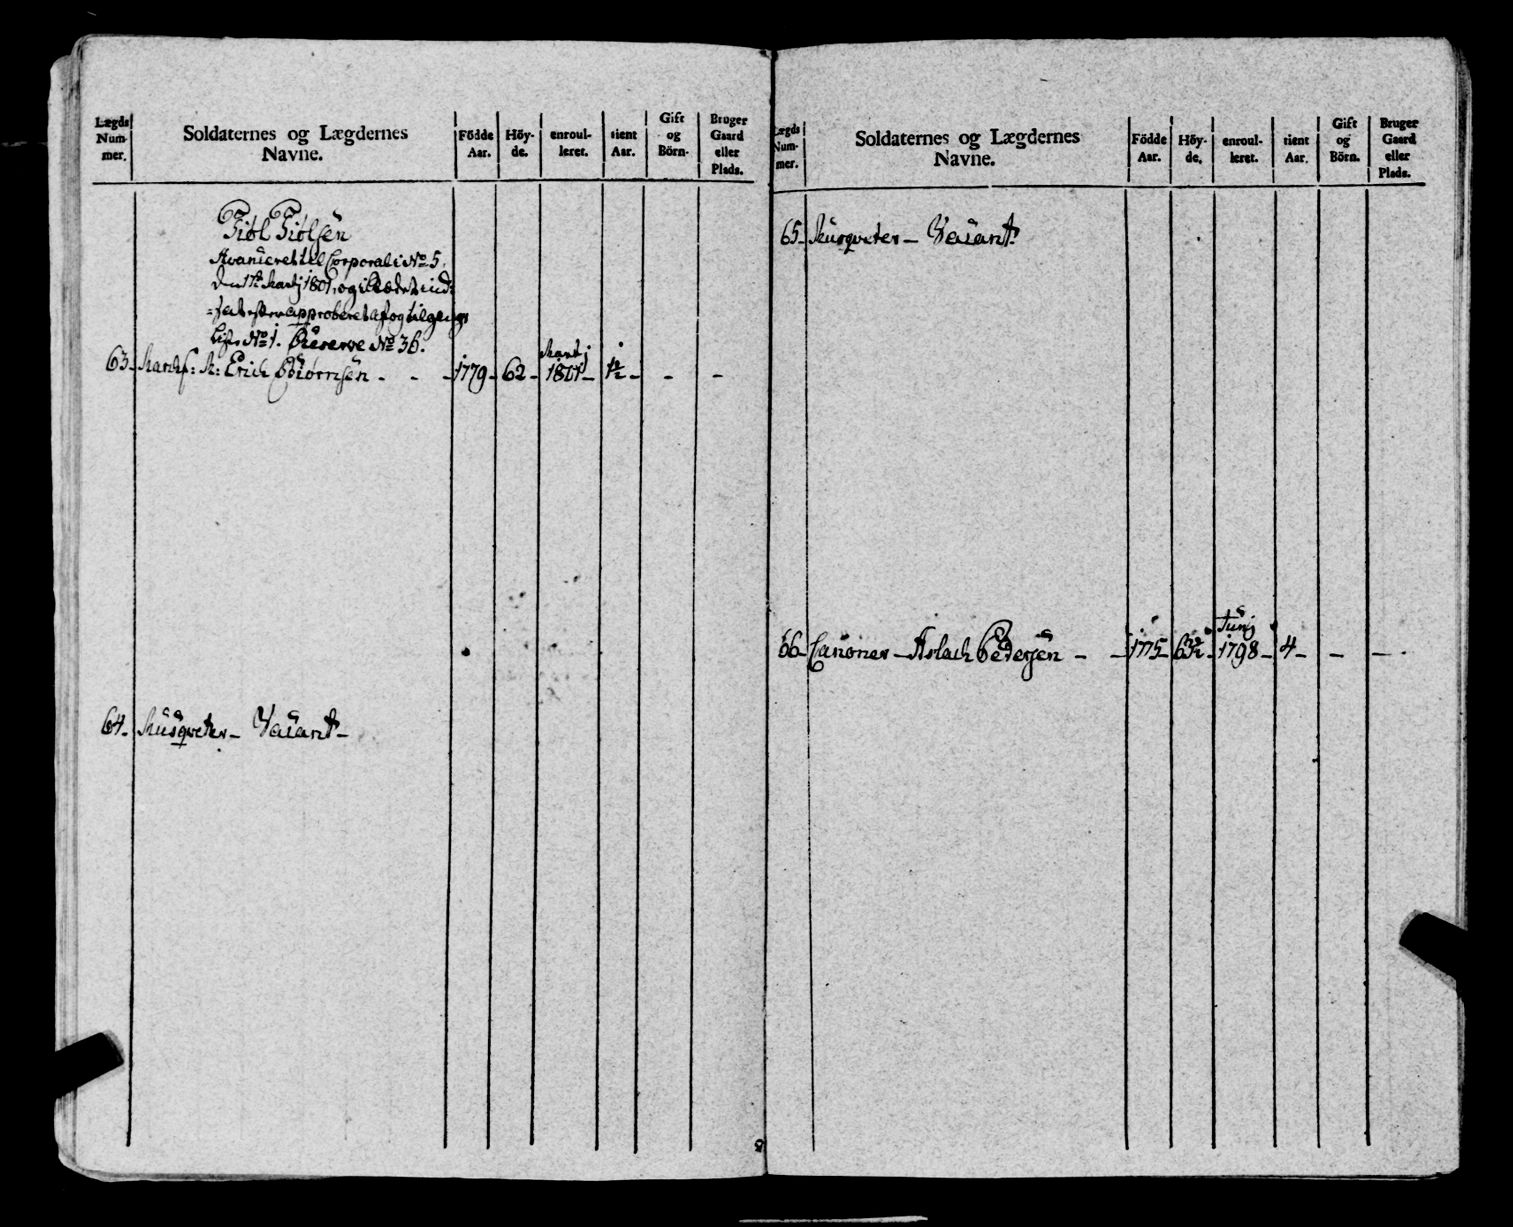 Lægds Num- mer.
Soldaternes og Lægdernes Navne.
Födde Aar.
Höy- de.
enroul- leret.
tient Aar.
Gift og Börn.
Bruger Gaard eller Plads.
Tiøl Tiølsen
Avanceret til Corporal i No 5.
den 17de Martj 1801, og i Stædet ind-
=sat efter approberet af og tilgangs
Liste No 1. Reserve No 36.
63- Erich Biørnsen - - - 1779- 62- Martj 1801- 1½- - -
64- Musqveter- Vacant-
Lægds Num- mer.
Soldaternes og Lægdernes Navne.
Födde Aar.
Höy- de.
enroul- leret.
tient Aar.
Gift og Börn.
Bruger Gaard eller Plads.
65- Musqveter- Vacant-
66- Canoner- Aslach Pedersen - - 1775- 63½- Junj 1798- 4- - -